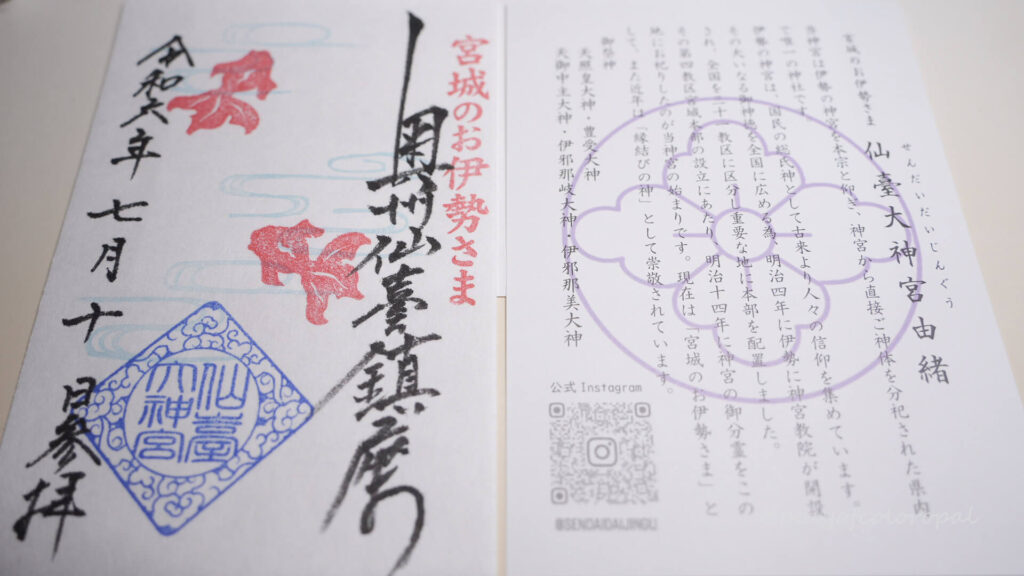 宮城のお伊勢さま
奥州仙臺鎮座
仙臺
大神宮
令和六年七月十日参拝
せんだいだいじんぐう
仙臺大神宮由緒
宮城のお伊勢さま
当神宮は伊勢の神宮を本宗と仰ぎ、神宮から直接ご神体を分祀された県内
で唯一の神社です。
伊勢の神宮は、国民の総氏神として古来より人々の信仰を集めています。
その大いなる御神徳を全国に広める為、明治四年に伊勢に神宮教院が開設
され、全国を二十一教区に区分し重要な地に本部を配置しました。
その第四教区宮城本部の設立にあたり、明治十四年に神宮の御分霊をこの
地にお祀りしたのが当神宮の始まりです。現在は「宮城のお伊勢さま」と
して、また近年は「縁結びの神」として崇敬されています。
御祭神
天照皇大神・豊受大神
天御中主大神・伊邪那岐大神・伊邪那美大神
公式 Instagram
@SENDAIDAIJINGU